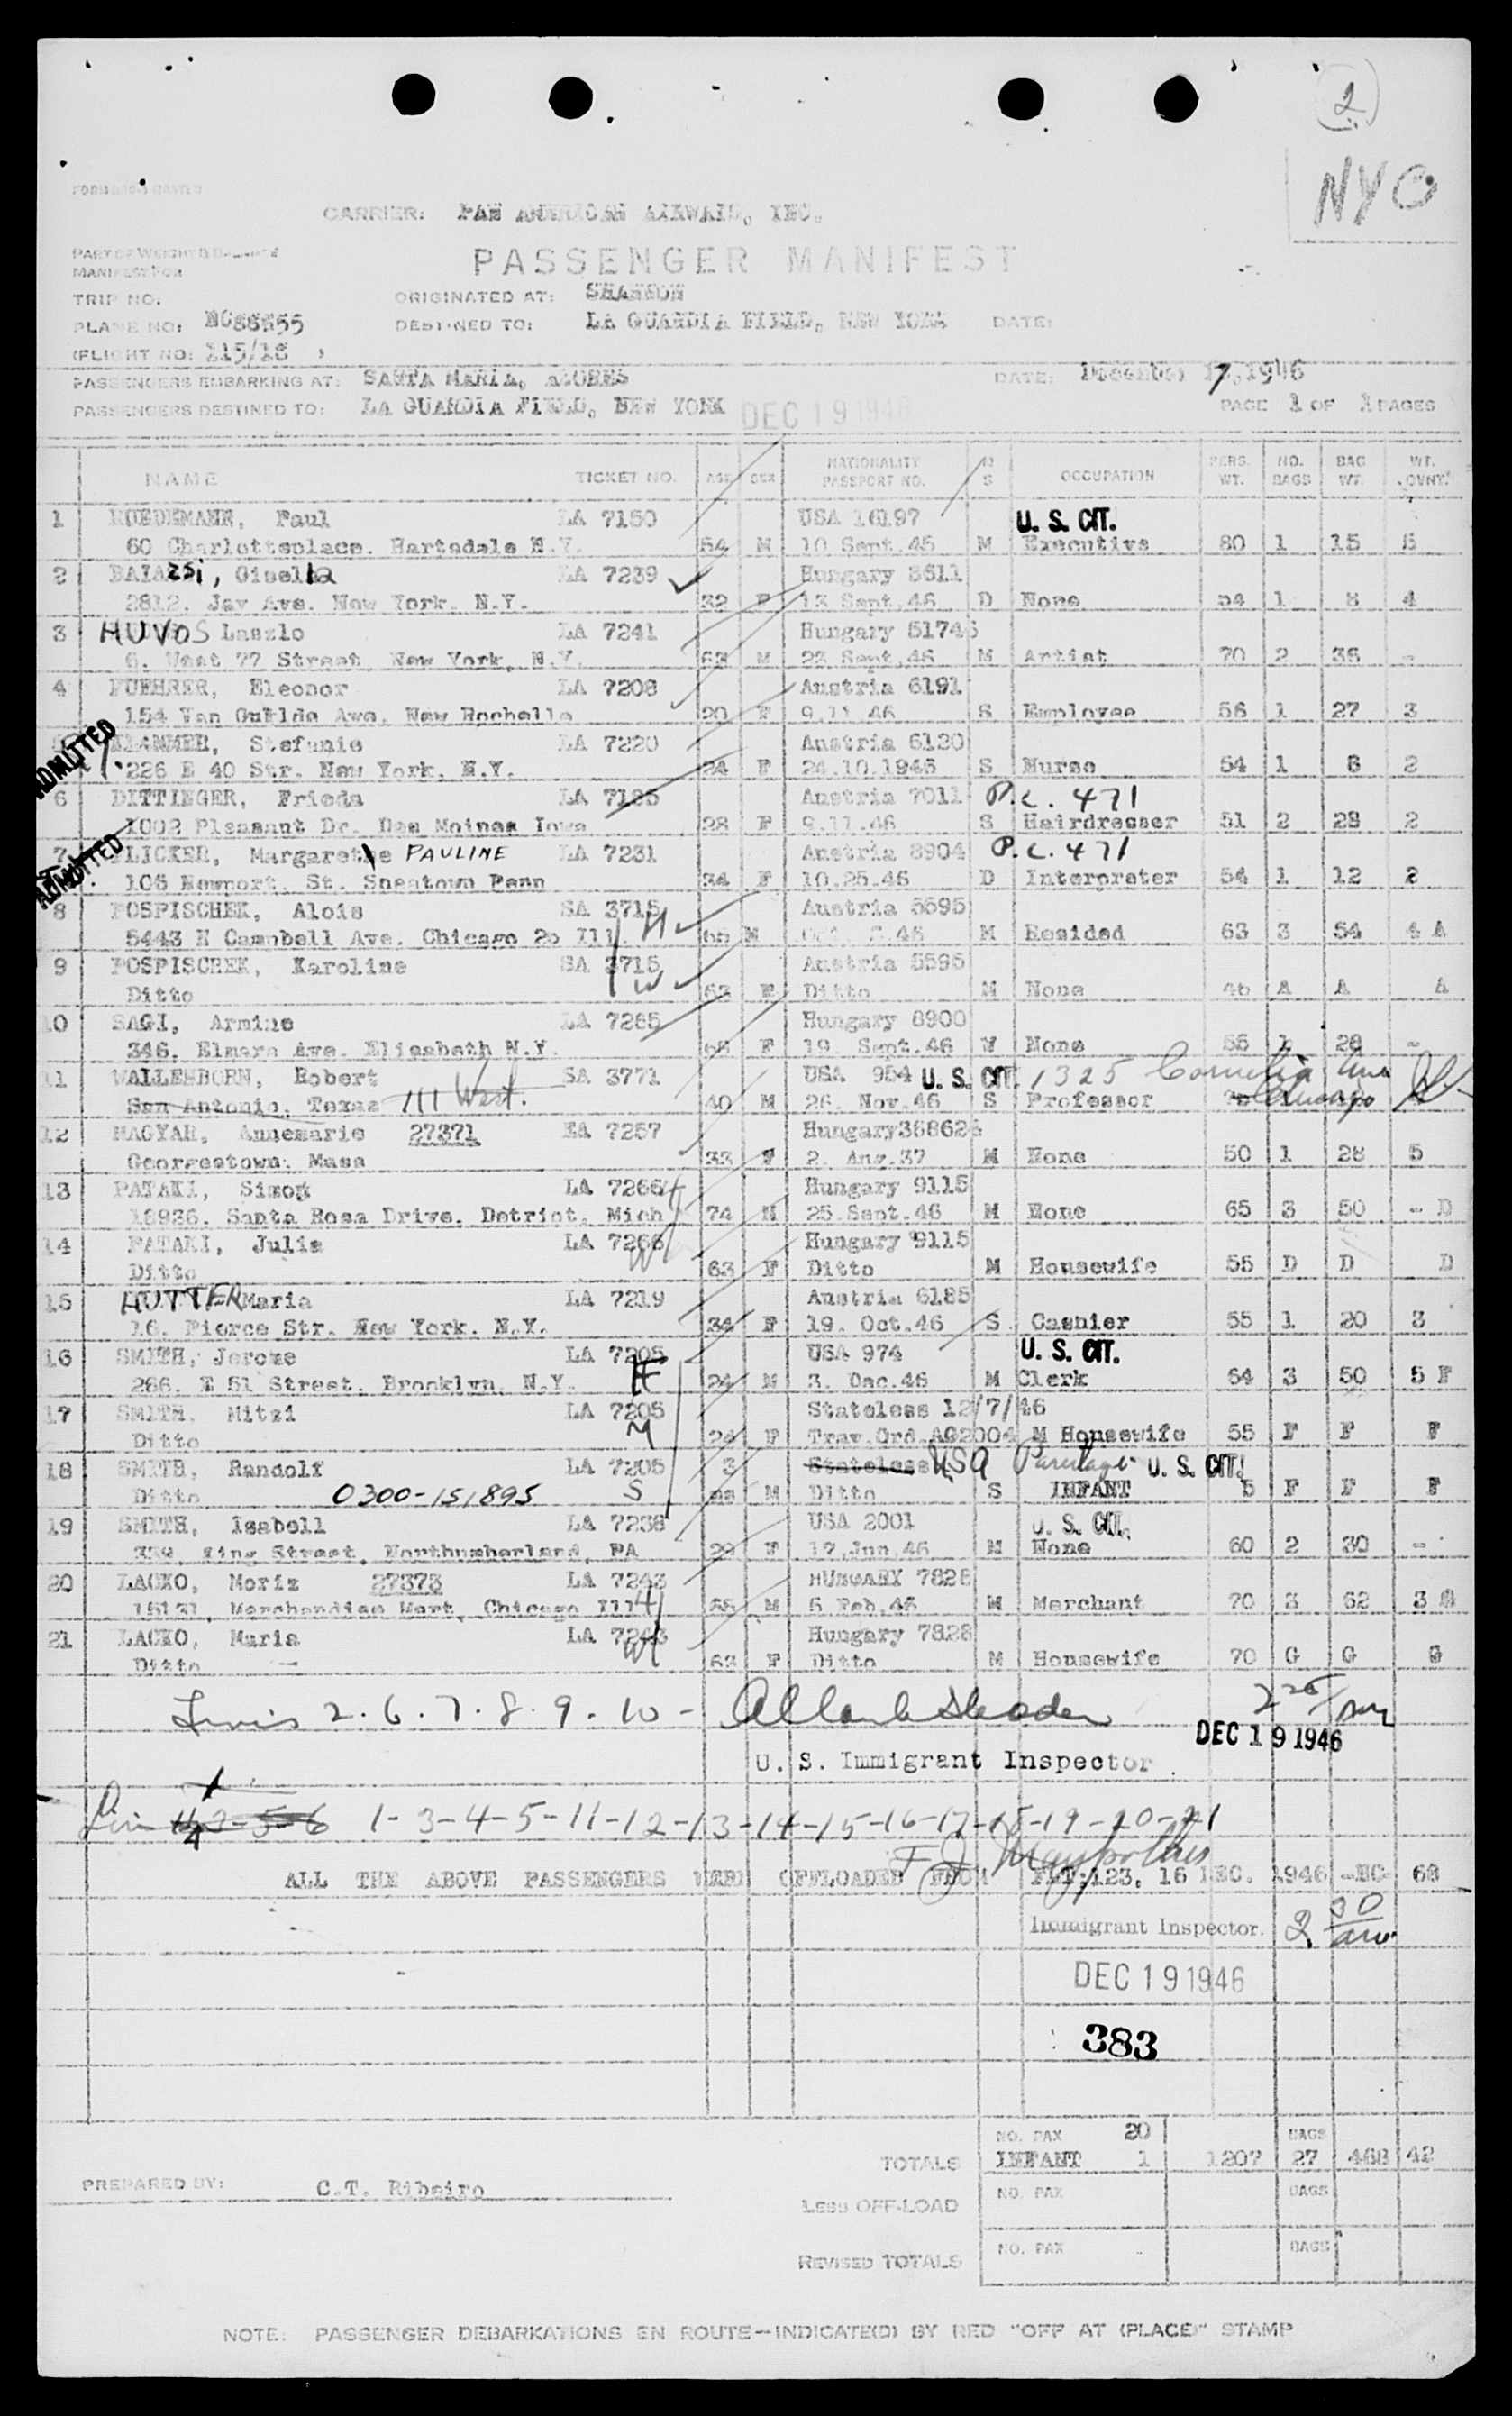 2
NYO
CARRIER: PAN AMERICAN AIRWAYS, INC.
PASSENGER MANIFEST
PART OF WEIGHT & BALANCE
MANIFEST FOR
TRIP NO.
ORIGINATED AT: SHANNON
PLANE NO: NC88855
DESTINED TO: LA GUARDIA FIELD, NEW YORK DATE:
(FLIGHT NO:
PASSENGERS EMBARKING AT: SANTA MARIA, AZORES DATE: December 17, 1946
PASSENGERS DESTINED TO: LA GUARDIA FIELD, NEW YORK DEC 19 1946 PAGE 1 OF 1 PAGES
NAME TICKET NO. AGE SEX NATIONALITY PASSPORT NO. M S OCCUPATION PERS. WT. NO. BAGS BAG WT. WT. OVNT.
1 Paul LA 7150 USA 16197 U. S. CIT.
60 Charlottsplace. Hartsdale N.Y. 54 M 10 Sept. 45 M Executive 80 1 15 5
2 BALAzsi, Gisella LA 7239 Hungary 3611
2812. Jay Ave. New York. N.Y. 32 F 13 Sept. 46 D None 54 1 8 4
3 HUVOS Laszlo LA 7241 Hungary 51746
6. West 77 Street, New York, N.Y. 63 M 23 Sept. 46 M Artist 70 2 36 -
4 FUEHRER, Eleonor LA 7208 Austria 6191
154 Van Ave. New Rochelle 20 F 9.11.46 S Employee 56 1 27 3
ADMITTED
5 KLAMMER, Stefanie LA 7220 Austria 6120
226 E 40 Str. New York. N.Y. 24 F 24.10.1946 S Nurse 54 1 8 2
6 DITTINGER, Frieda LA 7185 Austria 7011 P.C. 471
1002 Pleasant Dr. Des Moines Iowa 28 F 9.11.46 S Hairdresser 51 2 28 2
ADMITTED
7 FLICKER, Margarethe PAULINE LA 7231 Austria 8904 P.C. 471
106 Newport. St. Penn 34 F 10.25.46 D Interpreter 54 1 12 2
8 POSPISCHEK, Alois SA 3715 H Austria 5595
5443 N Campbell Ave. Chicago 25 Ill. 65 M M Resided 63 3 54 4 A
9 POSPISCHEK, Karoline SA 3715 W Austria 5595
Ditto 63 F Ditto M None 46 A A A
10 SAGI, Armine LA 7265 Hungary 8900
346. Elmora Ave. Elizabeth N.Y. 68 F 19. Sept. 46 W None 55 1 28 -
11 WALLENBORN, Robert SA 3771 USA 954 U. S. CIT. 1325 Cornelia Ave
San Antonio, Texas 111 West. 40 M 26. Nov. 46 S Professor Chicago
12 MAGYAR, Annemarie 27371 LA 7257 Hungary 368626
Georgetown, Mass 33 F 2. Aug. 37 M None 50 1 28 5
13 PATAKI, Simon LA 7266 H Hungary 9115
18936. Santa Rosa Drive. Detriot. Mich 74 M 25 Sept. 46 M None 65 3 50 - D
14 PATAKI, Julia LA 7266 W Hungary 9115
Ditto 63 F Ditto M Housewife 55 D D D
15 HUTTER Maria LA 7219 Austria 6185
16. Pierce Str. New York. N.Y. 34 F 19. Oct. 46 S Cashier 55 1 20 3
16 SMITH, Jerome LA 7205 USA 974 U. S. CIT.
266. E 51 Street. Brooklyn. N.Y. F 24 M 3. Dec. 46 M Clerk 64 3 50 5 F
17 SMITH. Mitzi LA 7205 Stateless 12/7/46
Ditto M 24 F Trav. Ord. AG2004 M Housewife 55 F F F
18 SMITH, Randolf LA 7205 3 Stateless USA Parentage U. S. CIT.
Ditto 0300-151895 S M Ditto S INFANT 5 F F F
19 SMITH, Isabell LA 7238 USA 2001 U. S. CIT.
King Street, Northumberland, PA 29 F 17. Jun. 46 M None 60 2 30 -
20 LACKO, Moriz 27373 LA 7243 HUNGARY 7828
15131, Merchandise Mart, Chicago Ill H 65 M 5 Feb. 46 M Merchant 70 3 62 3 G
21 LACKO, Maria LA 7243 Hungary 7828
Ditto W 63 F Ditto M Housewife 70 G G G
2. 6. 7. 8. 9. 10 -
DEC 19 1946
U. S. Immigrant Inspector
1-3-4-5-11-12-13-14-15-16-17-18-19-20-21
ALL THE ABOVE PASSENGERS WERE OFFLOADED FROM FLT: 123, 16 DEC. 1946 -NC- 68
Immigrant Inspector. 2 30 am
DEC 19 1946
383
NO. PAX 20 BAGS
TOTALS INFANT 1 1207 27 468 42
PREPARED BY: C.T. Ribeiro
LESS OFF-LOAD NO. PAX BAGS
REVISED TOTALS NO. PAX BAGS
NOTE: PASSENGER DEBARKATIONS EN ROUTE—INDICATE(D) BY RED "OFF AT (PLACE)" STAMP